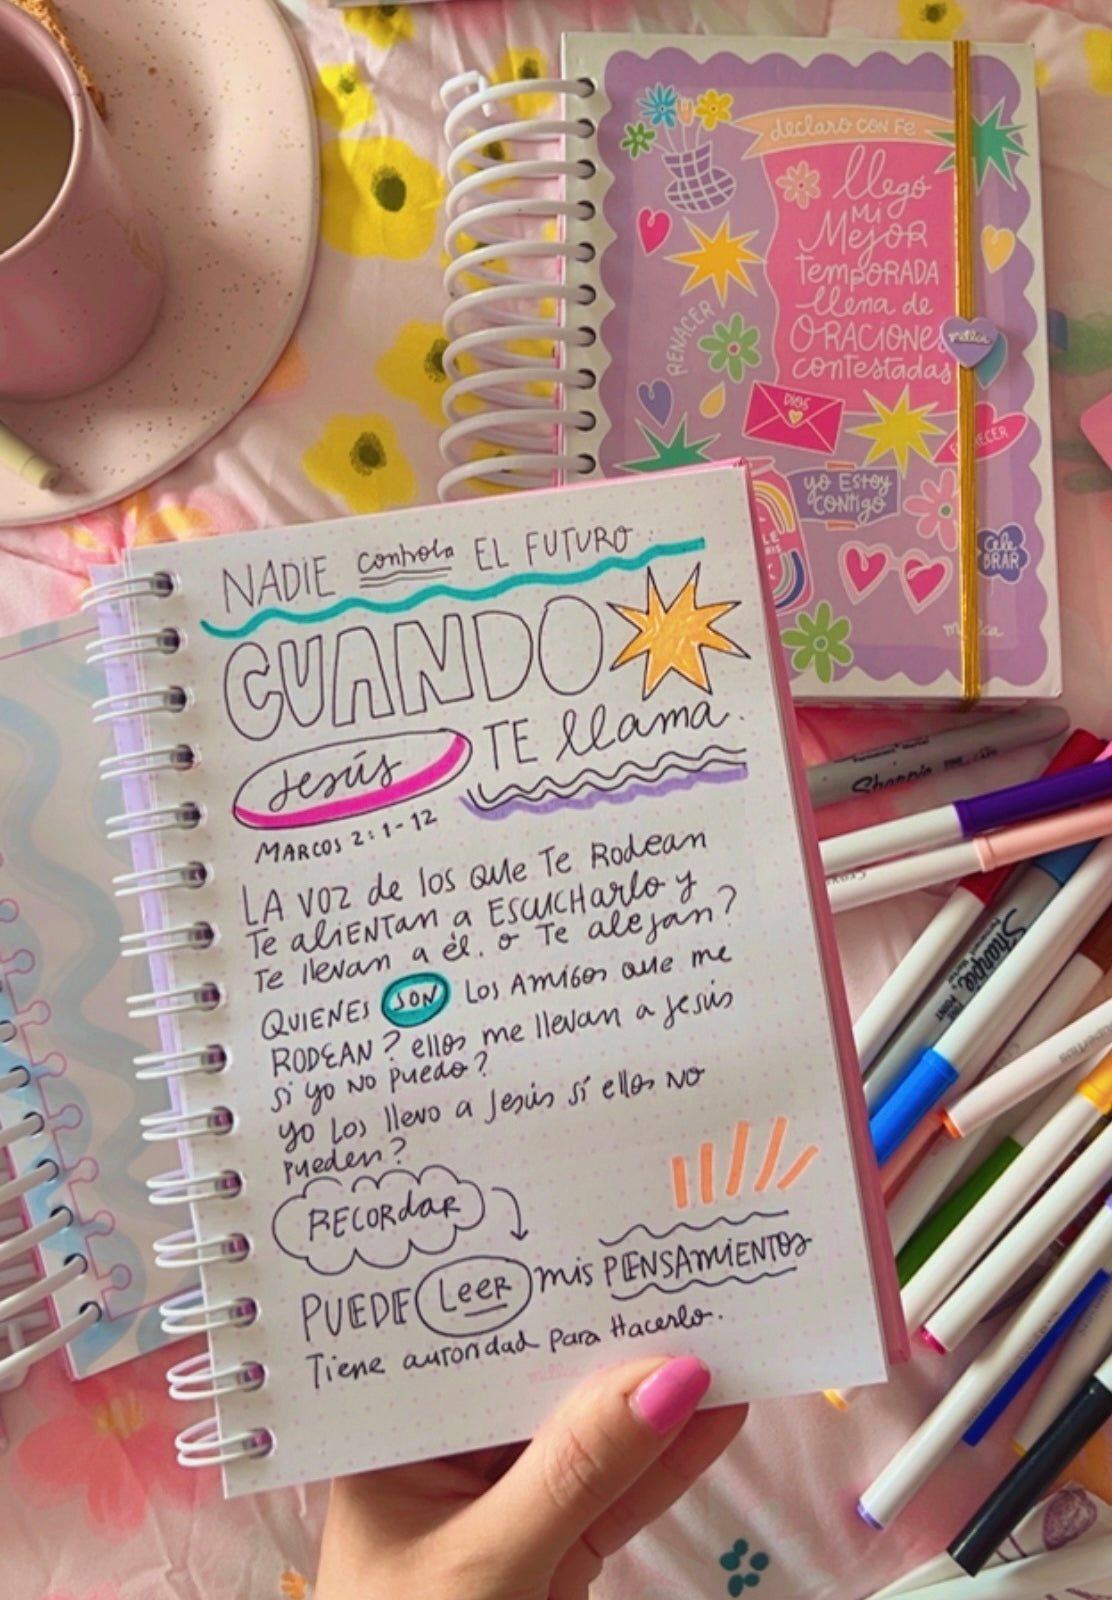 declaro con fe
llegó
mi
Mejor
temporada
llena de
ORACIONES
contestadas
RENACER
DIOS
yo Estoy
CONTIGO
CELE
BRAR
milica
NADIE controla EL FUTURO
CUANDO
Jesús TE llama.
MARCOS 2:1-12
LA VOZ de los que Te Rodean
Te alientan a Escucharlo y
Te llevan a él. o Te alejan?
QUIENES SON Los Amigos que me
RODEAN? ellos me llevan a Jesús
si yo no puedo?
yo Los llevo a Jesús sí ellos NO
pueden?
RECORdar
PUEDE Leer mis PENSAMIENTOS
Tiene autoridad para Hacerlo.
Sharpie
Sharpie
FINE POINT